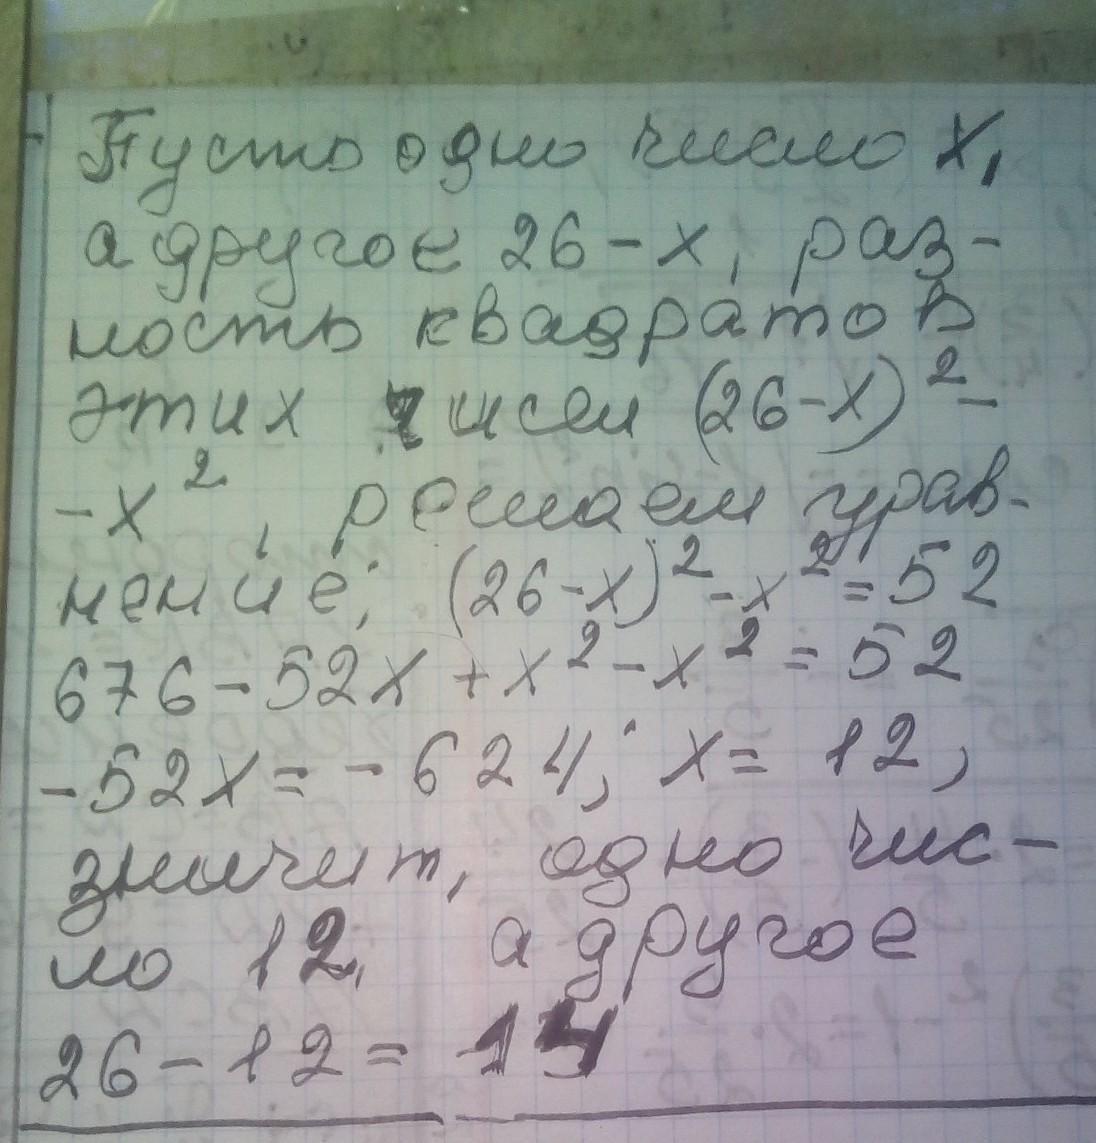 Пусть одно число х,
а другое 26-х, раз-
ность квадратов
этих чисел (26-х)²-
-х², решаем урав-
нение; (26-х)²-х²=52
676-52х+х²-х²=52
-52х=-624; х=12,
значит, одно чис-
ло 12, а другое
26-12=14